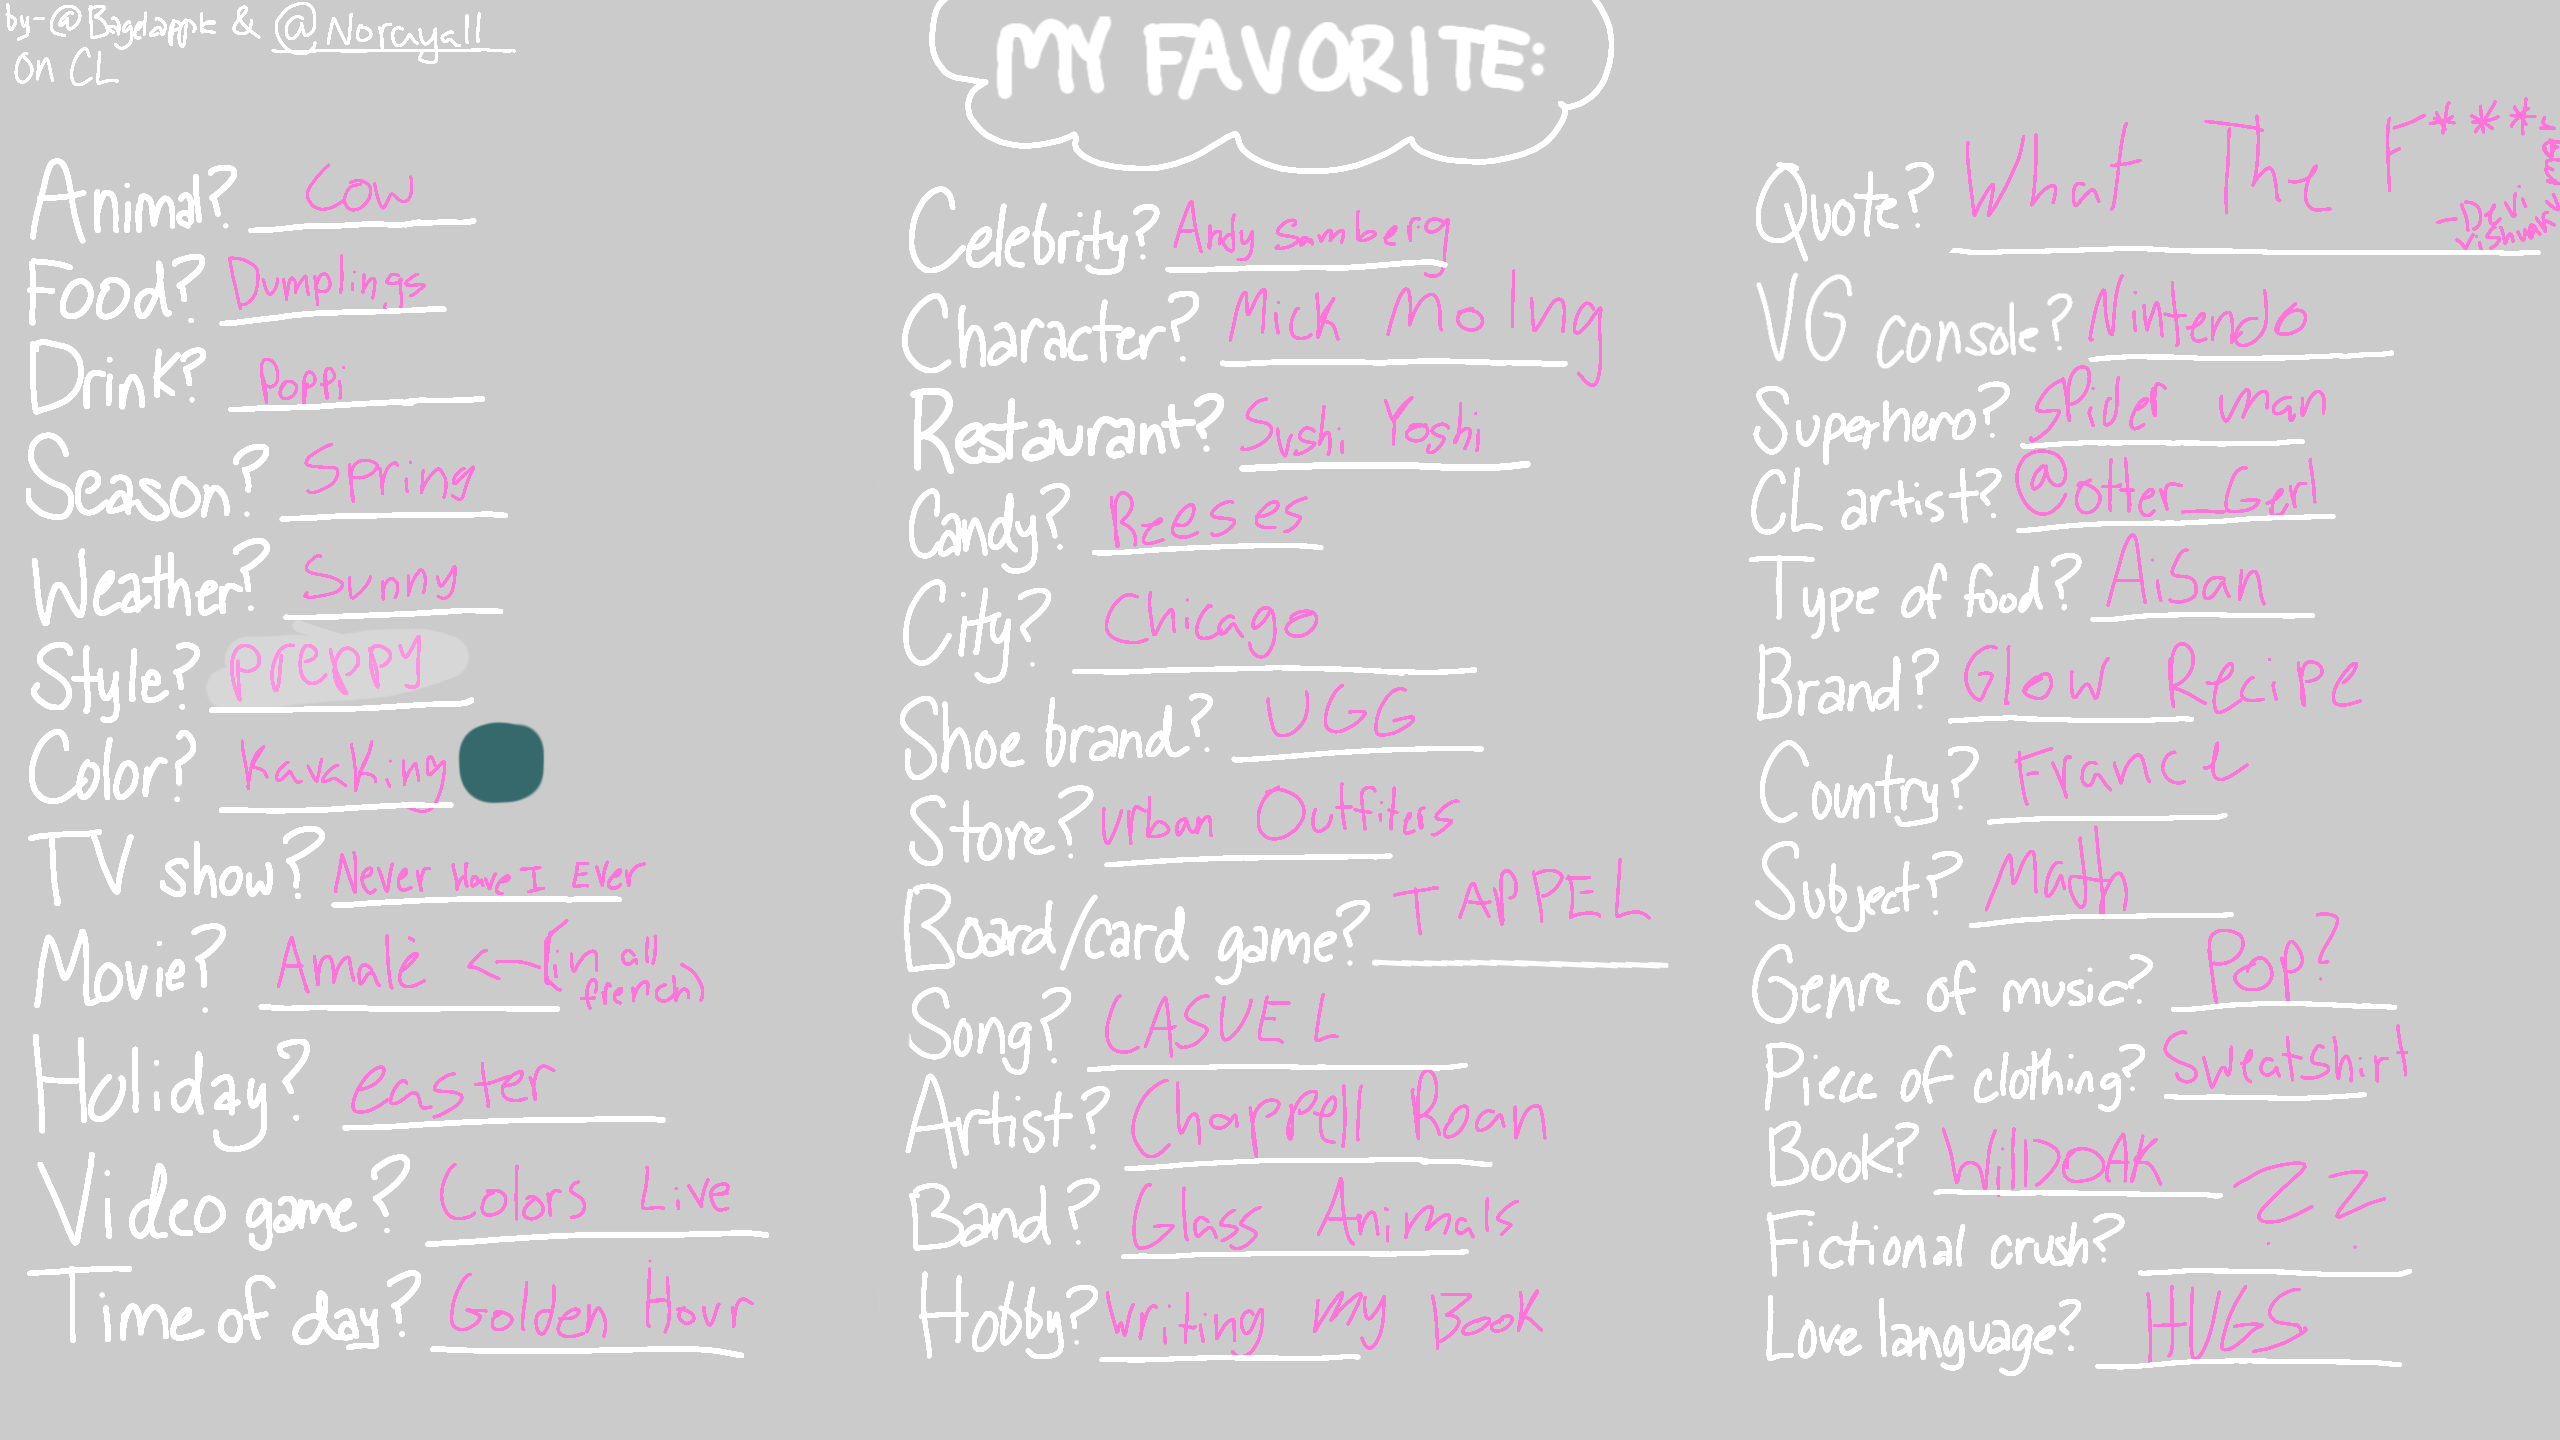 by-@Bagelapple & @Norayall
on CL
MY FAVORITE:
Animal? Cow
Food? Dumplings
Drink? Poppi
Season? Spring
Weather? Sunny
Style? preppy
Color? Kavaking
TV show? Never Have I Ever
Movie? Amalè <-(in all french)
Holiday? easter
Video game? Colors Live
Time of day? Golden Hour
Celebrity? Andy Samberg
Character? Mick Molng
Restaurant? Sushi Yoshi
Candy? Reeses
City? Chicago
Shoe brand? UGG
Store? Urban Outfiters
Board/card game? TAPPEL
Song? CASUEL
Artist? Chappell Roan
Band? Glass Animals
Hobby? Writing my Book
Quote? What The F***
-Devi
VG console? Nintendo
Superhero? Spider man
CL artist? @otter_Gerl
Type of food? AiSan
Brand? Glow Recipe
Country? France
Subject? Math
Genre of music? Pop?
Piece of clothing? Sweatshirt
Book? WillDOAK
Fictional crush? ??
Love language? HUGS